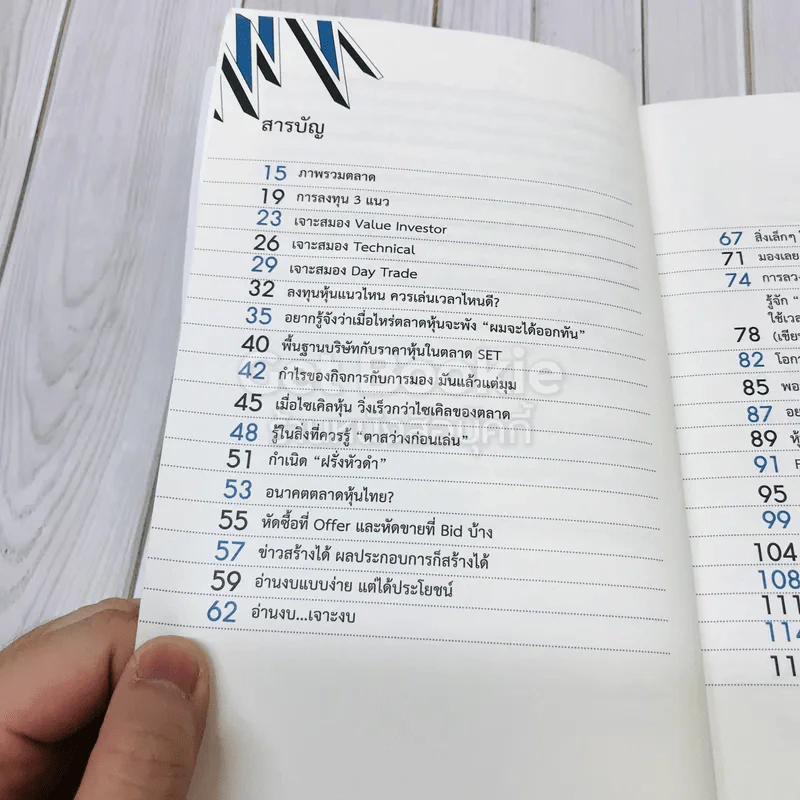 สารบัญ
15 ภาพรวมตลาด
19 การลงทุน 3 แนว
23 เจาะสมอง Value Investor
26 เจาะสมอง Technical
29 เจาะสมอง Day Trade
32 ลงทุนหุ้นแนวไหน ควรเล่นเวลาไหนดี?
35 อยากรู้จังว่าเมื่อไหร่ตลาดหุ้นจะพัง “ผมจะได้ออกทัน”
40 พื้นฐานบริษัทกับราคาหุ้นในตลาด SET
42 กำไรของกิจการกับการมอง มันแล้วแต่มุม
45 เมื่อไซเคิลหุ้น วิ่งเร็วกว่าไซเคิลของตลาด
48 รู้ในสิ่งที่ควรรู้ “ตาสว่างก่อนเล่น”
51 กำเนิด “ฝรั่งหัวดำ”
53 อนาคตตลาดหุ้นไทย?
55 หัดซื้อที่ Offer และหัดขายที่ Bid บ้าง
57 ข่าวสร้างได้ ผลประกอบการก็สร้างได้
59 อ่านงบแบบง่าย แต่ได้ประโยชน์
62 อ่านงบ...เจาะงบ
67 สิ่งเล็กๆ
71 มองเลย
74 การลว
รู้จัก “
ใช้เวล
78 (เขีย
82 โอก
85 พอ
87 อย
89
91
95
99
104
108
111